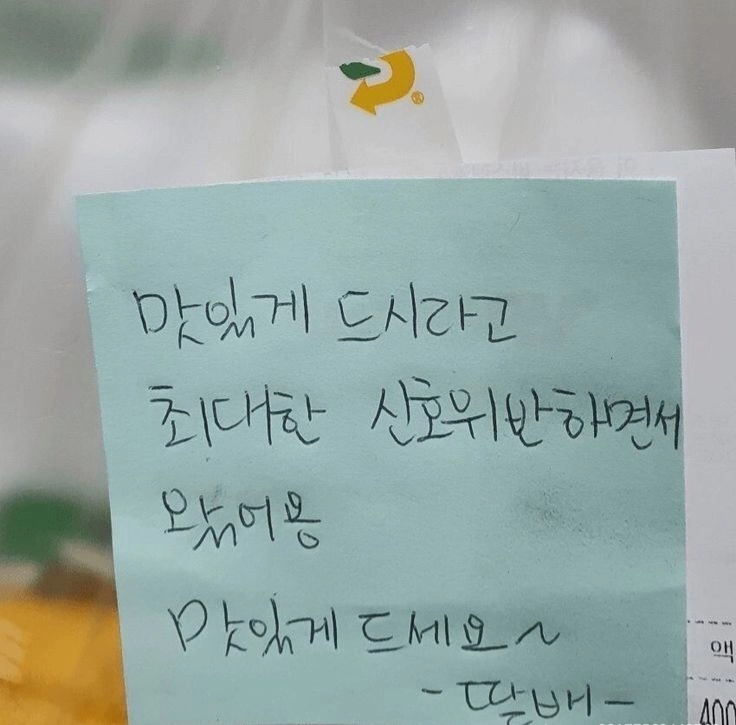 맛있게 드시라고
최대한 신호위반하면서
왔어용
맛있게 드세요~
-딸배-
액
400